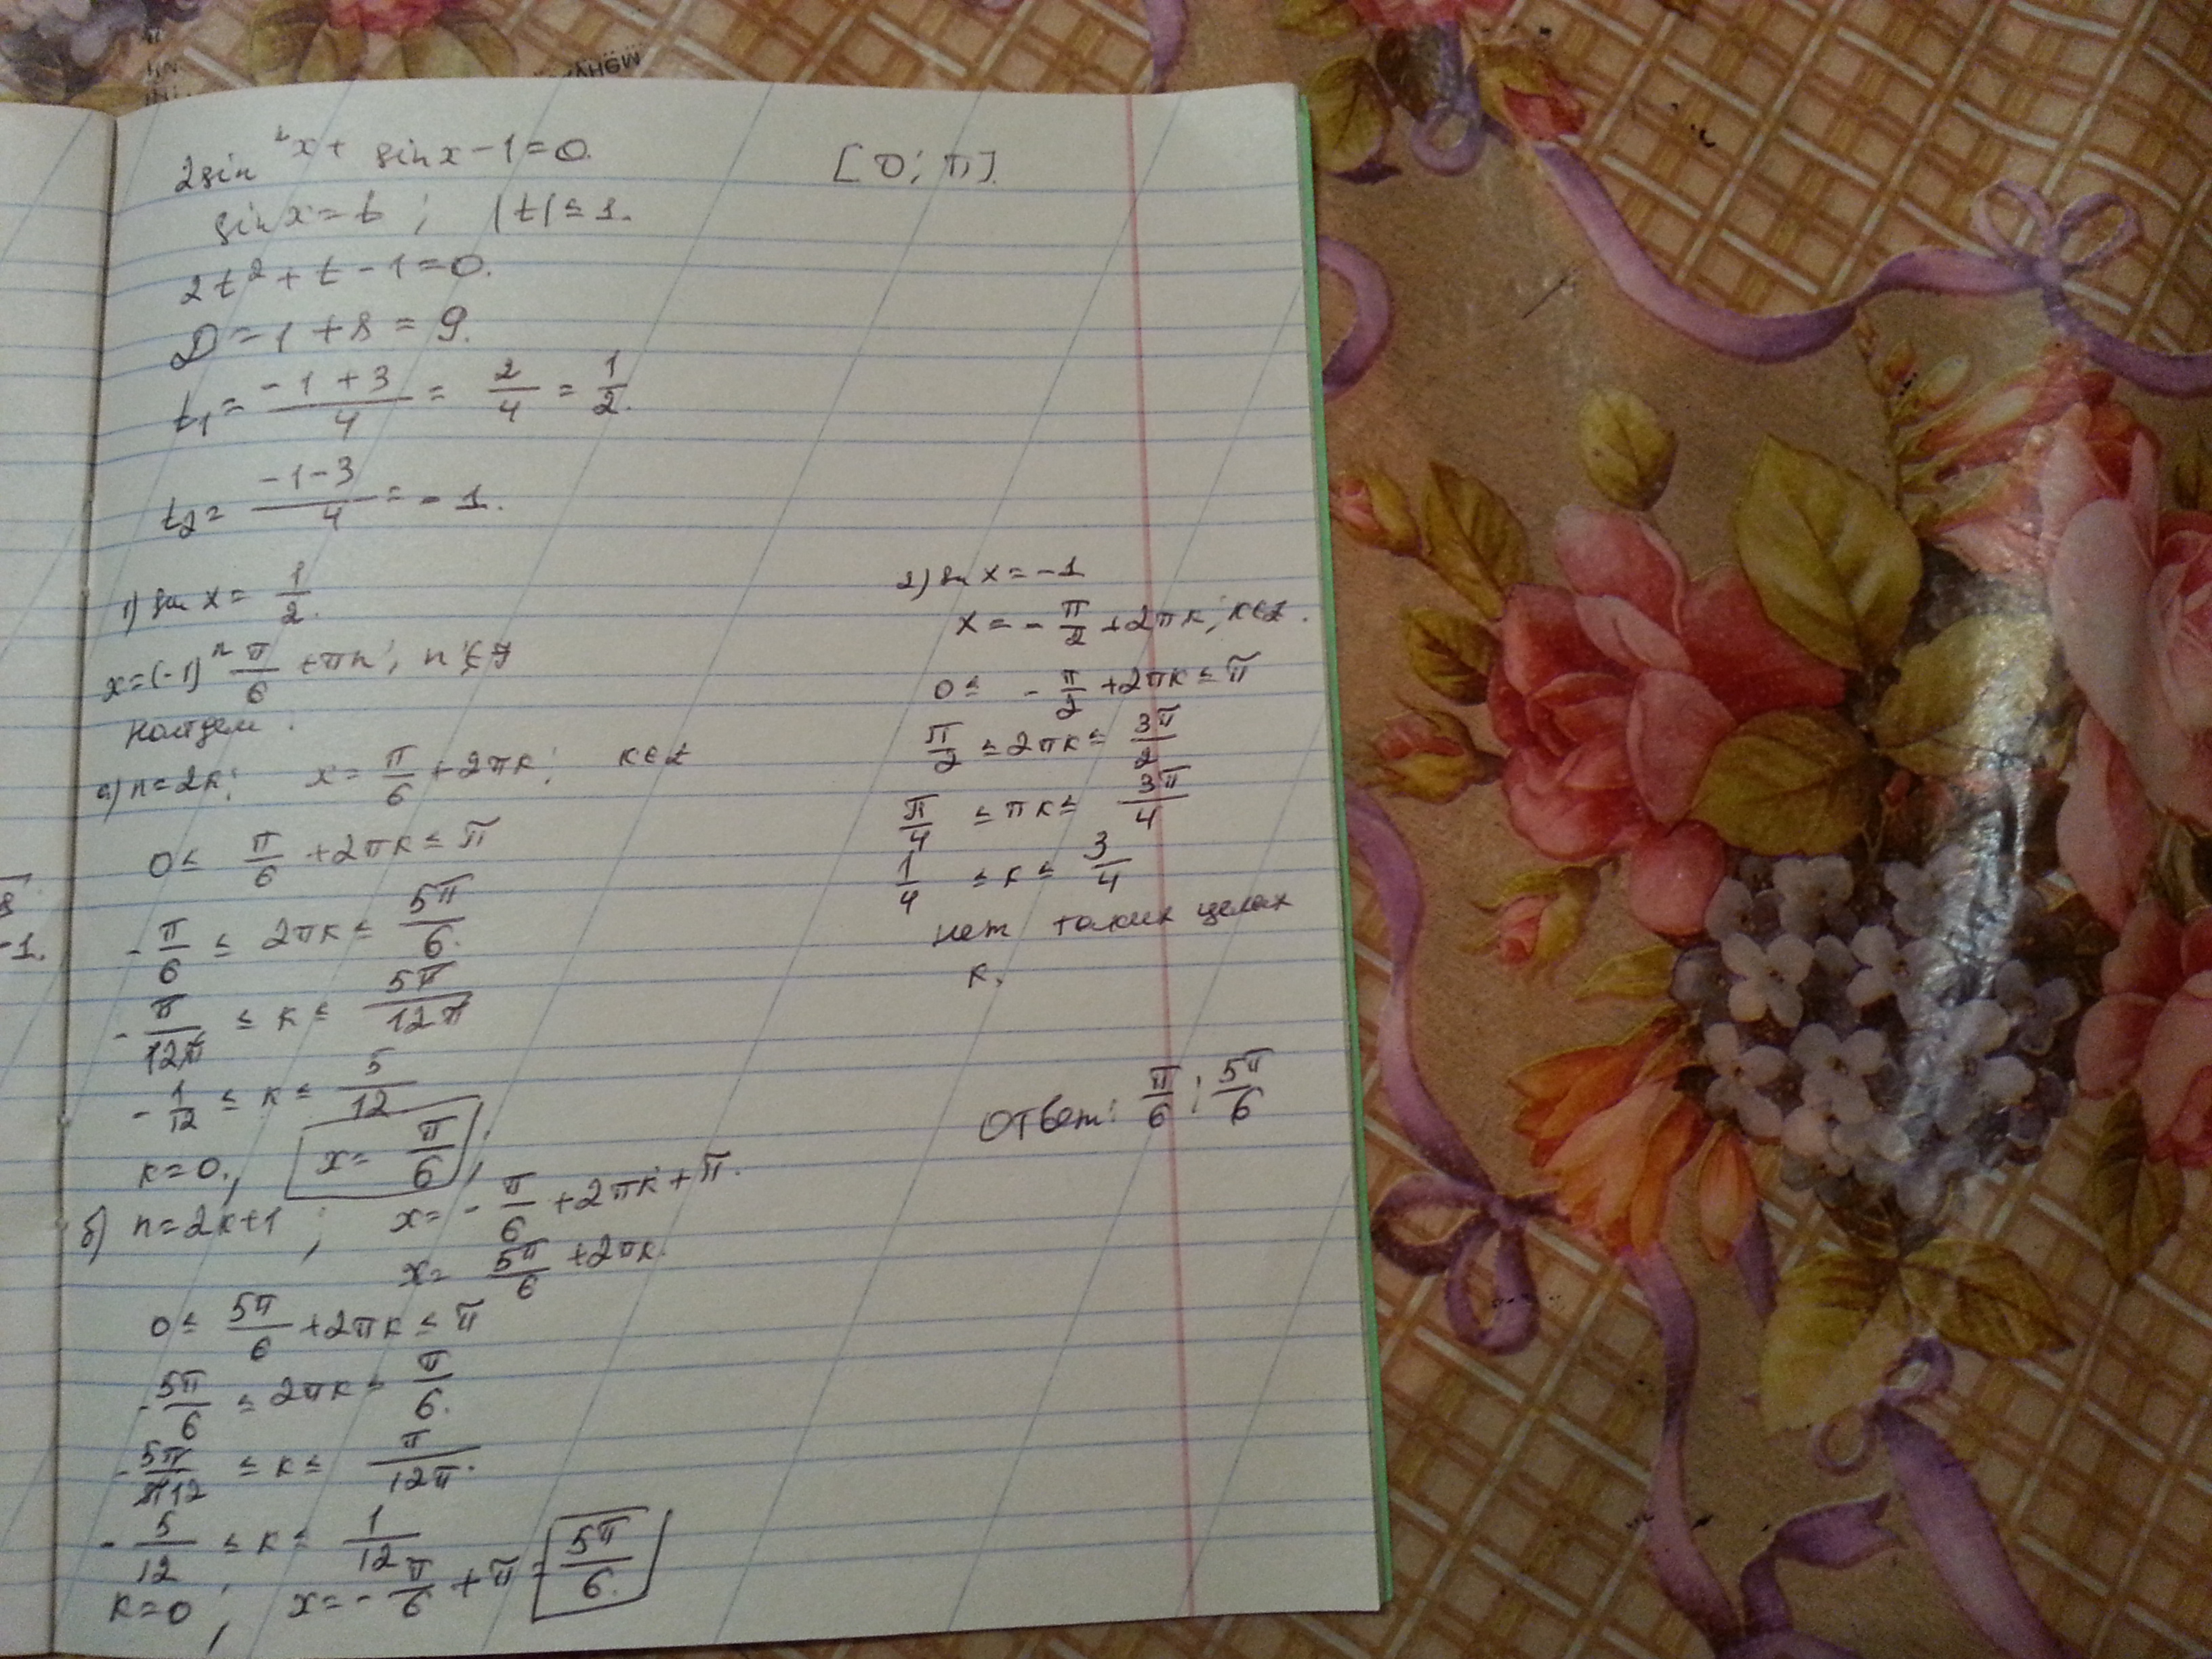 2sin²x + sinx - 1 = 0.
[0; π].
sinx = t; |t| ≤ 1.
2t² + t - 1 = 0.
D = 1 + 8 = 9.
t₁ = (-1 + 3)/4 = 2/4 = 1/2.
t₂ = (-1 - 3)/4 = - 1.
1) sin x = 1/2.
x = (-1)ⁿ π/6 + πn; n ∈ Z
Найдем:
а) n = 2k; x = π/6 + 2πk; k ∈ Z
0 ≤ π/6 + 2πk ≤ π
- π/6 ≤ 2πk ≤ 5π/6.
- π/12π ≤ k ≤ 5π/12π
- 1/12 ≤ k ≤ 5/12
k = 0., x = π/6;
б) n = 2k+1; x = - π/6 + 2πk + π.
x = 5π/6 + 2πk.
0 ≤ 5π/6 + 2πk ≤ π
- 5π/6 ≤ 2πk ≤ π/6.
- 5π/π12 ≤ k ≤ π/12π.
- 5/12 ≤ k ≤ 1/12;
k = 0, x = - π/6 + π = 5π/6.
2) sin x = -1
x = - π/2 + 2πk; k ∈ Z.
0 ≤ - π/2 + 2πk ≤ π
π/2 ≤ 2πk ≤ 3π/2
π/4 ≤ πk ≤ 3π/4
1/4 ≤ k ≤ 3/4
нет таких целых
k.
Ответ: π/6; 5π/6
-1.